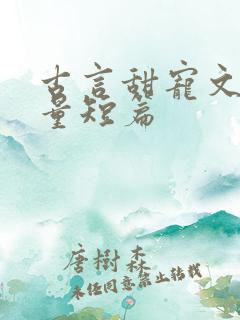 古言甜宠文
量短篇
唐樹森
未经同意禁止转载